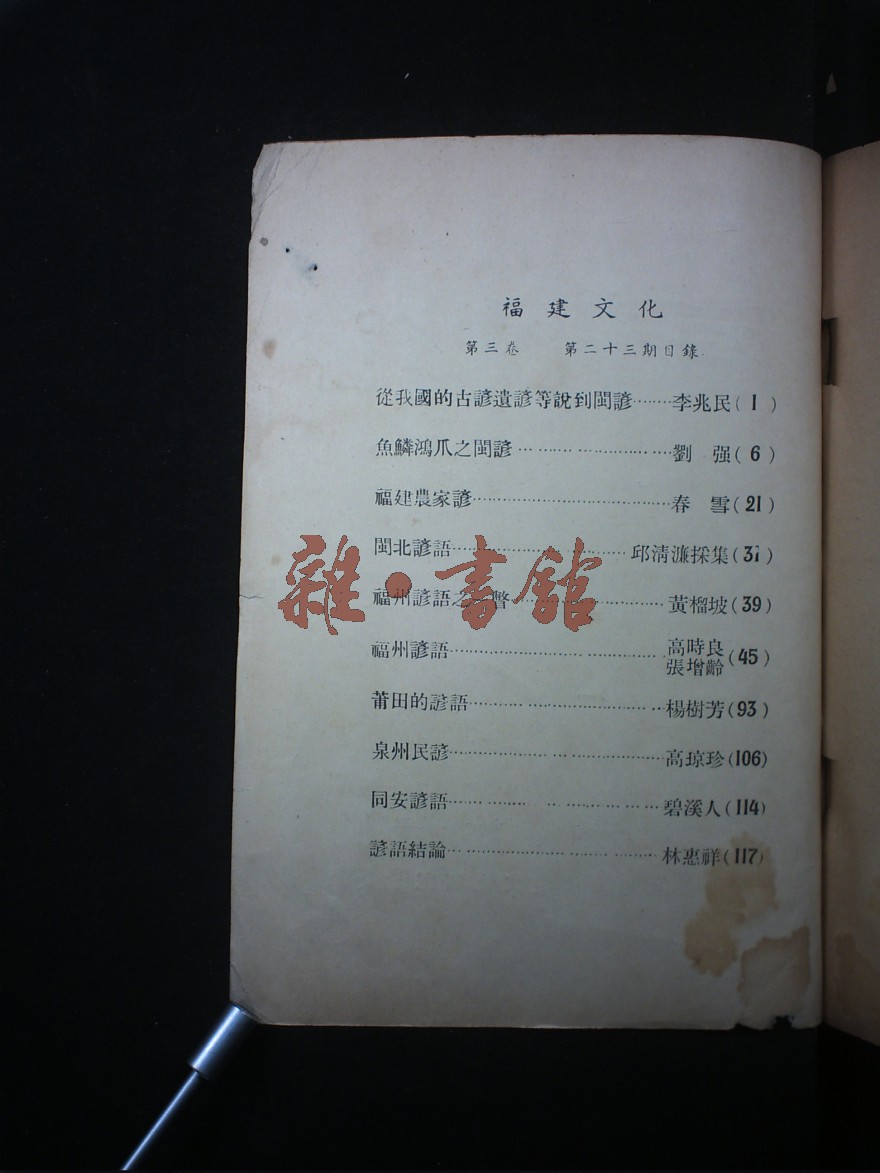 福建文化
第三卷 第二十三期目錄
從我國的古諺遺諺等說到閩諺……李兆民(1)
魚鱗鴻爪之閩諺……劉强(6)
福建農家諺……春雪(21)
閩北諺語……邱清濂採集(31)
福州諺語之一瞥……黃榴坡(39)
福州諺語……高時良 張增齡(45)
莆田的諺語……楊樹芳(93)
泉州民諺……高琼珍(106)
同安諺語……碧溪人(114)
諺語結論……林惠祥(117)
雜·書館